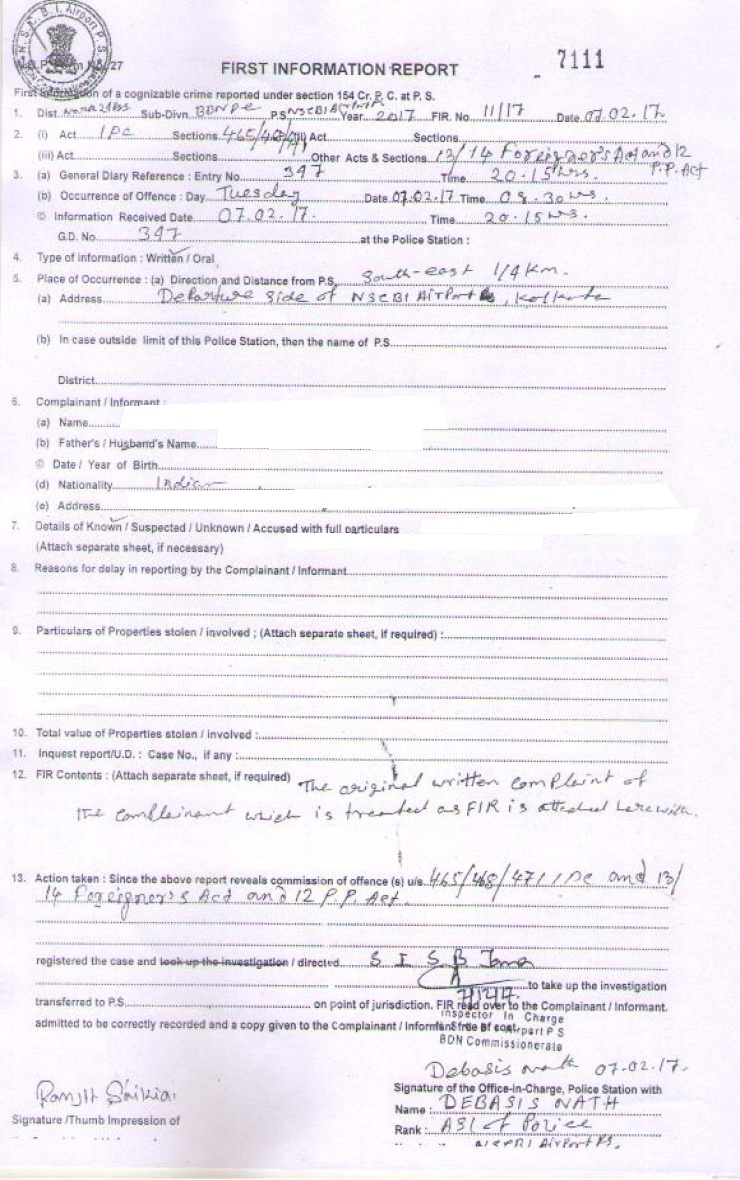 N.S.C.B.I. Airport P.S.
Form No. 27
FIRST INFORMATION REPORT
7111
First Information of a cognizable crime reported under section 154 Cr. P. C. at P. S.
1. Dist. Sub-Divn. BDNPC P.S. NSCBI Airport Year 2017 FIR No. 11/17 Date 07.02.17.
2. (i) Act IPC Sections 465/468/471 (ii) Act Sections
(iii) Act Sections Other Acts & Sections 13/14 Foreigner's Act and 12 P.P. Act
3. (a) General Diary Reference : Entry No. 347 Time 20.15 hrs.
(b) Occurrence of Offence : Day Tuesday Date 07.02.17 Time 08.30 hrs.
© Information Received Date 07.02.17. Time 20.15 hrs.
G.D. No. 347 at the Police Station :
4. Type of information : Written / Oral
5. Place of Occurrence : (a) Direction and Distance from P.S. South-east 1/4 km.
(a) Address Departure side of NSCBI Airport, Kolkata
(b) In case outside limit of this Police Station, then the name of P.S.
District
6. Complainant / Informant :
(a) Name
(b) Father's / Husband's Name
© Date / Year of Birth
(d) Nationality Indian
(e) Address
7. Details of Known / Suspected / Unknown / Accused with full particulars
(Attach separate sheet, if necessary)
8. Reasons for delay in reporting by the Complainant / Informant
9. Particulars of Properties stolen / involved ; (Attach separate sheet, if required) :
10. Total value of Properties stolen / involved :
11. Inquest report/U.D. : Case No., if any :
12. FIR Contents : (Attach separate sheet, if required) The original written complaint of
the complainant which is treated as FIR is attached herewith.
13. Action taken : Since the above report reveals commission of offence (s) u/s. 465/468/471 IPC and 13/
14 Foreigner's Act and 12 P.P. Act.
registered the case and look up the investigation / directed S I S B Jana
to take up the investigation
7/2/17
transferred to P.S. on point of jurisdiction. FIR read over to the Complainant / Informant.
Inspector In Charge
admitted to be correctly recorded and a copy given to the Complainant / Informant free of cost.
Airport P S
BDN Commissionerate
Debasis Nath 07.02.17.
Ranjit Saikia
Signature of the Office-in-Charge, Police Station with
Name : DEBASIS NATH
Signature /Thumb Impression of
Rank : ASI of Police
NSCBI Airport PS.